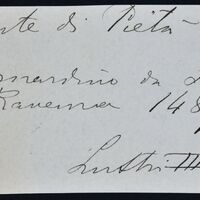 nte di Pietà
nardino da
Ravenna 148